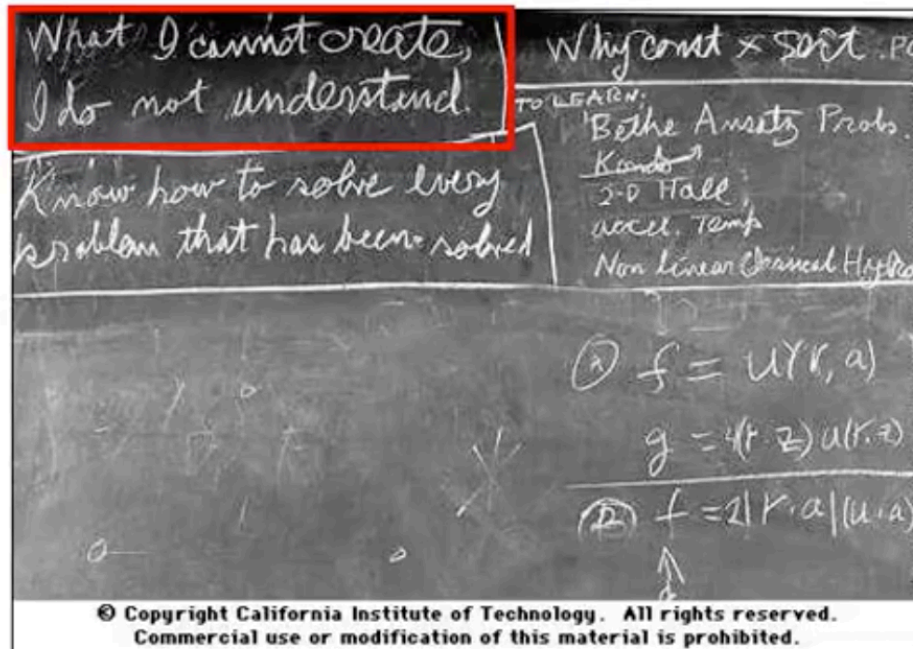 What I cannot create,
I do not understand.
Know how to solve every
problem that has been solved
Why const × sort . PO
TO LEARN:
Bethe Ansatz Probs.
Kondo
2-D Hall
accel. Temp
Non Linear Classical Hydro
Ⓐ f = U(r, a)
g = 4(r·z) u(r·z)
f = 2|r·a|(u·a)
© Copyright California Institute of Technology. All rights reserved.
Commercial use or modification of this material is prohibited.